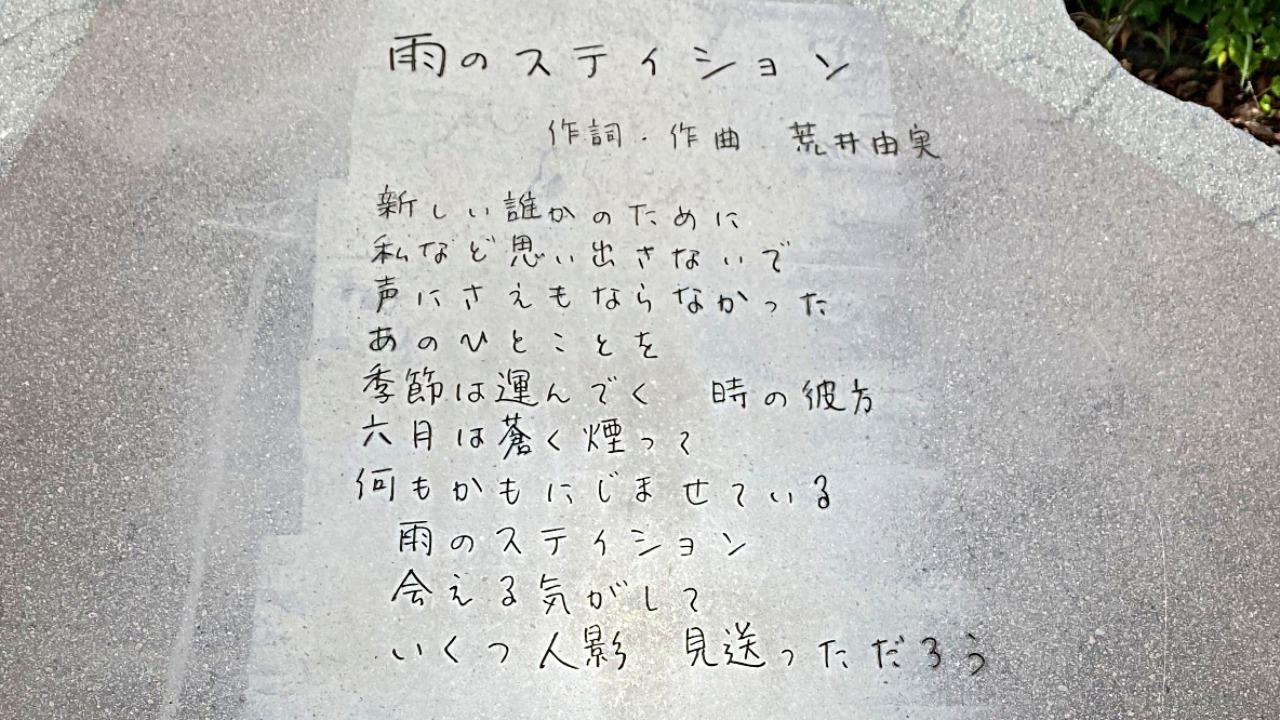 雨のステイション
作詞・作曲 荒井由実
新しい誰かのために
私など思い出さないで
声にさえもならなかった
あのひとことを
季節は運んでく 時の彼方
六月は蒼く煙って
何もかもにじませている
雨のステイション
会える気がして
いくつ人影 見送っただろう